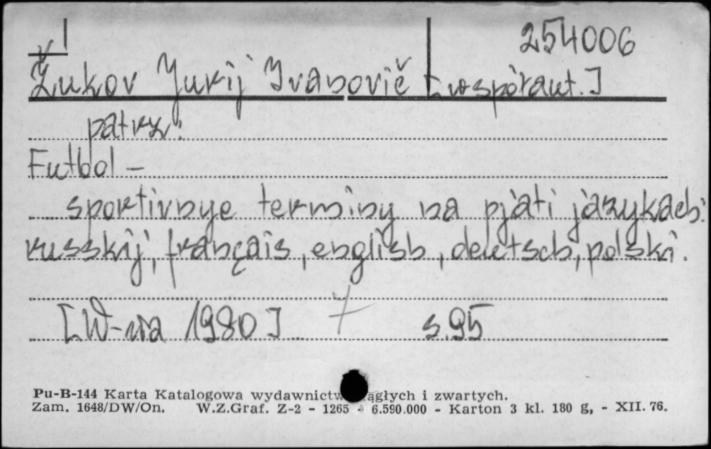 254006
Žukov Jurij Ivanovič [współaut.]
patrz:
Futbol –
sportivnye terminy na pjati jazykach:
russkij, français, english, deutsch, polski.
[W-wa 1980] s. 95
Pu-B-144 Karta Katalogowa wydawnictw ciągłych i zwartych.
Zam. 1648/DW/On. W.Z.Graf. Z-2 - 1265 - 6.590.000 - Karton 3 kl. 180 g, - XII. 76.